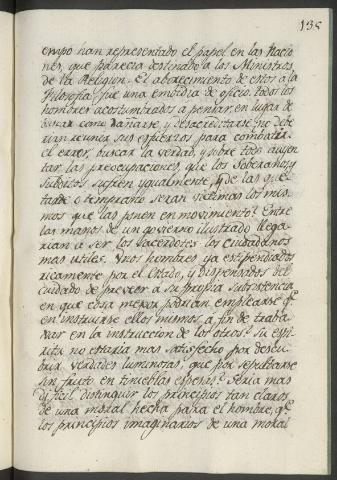 135
empo han representado el papel en las Nacio
nes, que parecia destinado a los Ministros
de la Religion. El aborecimiento de estos a la
Filosofia, fue una embidia de oficio. todos los
hombres acostumbrados a pensar, en lugar de
buscar como dañarse y desacreditarse, no debe
rian reunir sus esfuerzos para combatir
el error, buscar la verdad, y sobre todo auyen
tar las preocupaciones, que los Soberanos y
Subditos sufren ygualmente, y de las que
tarde o temprano seran victimas los mis
mos que las ponen en movimiento? Entre
las manos de un govierno ilustrado llega
rian a ser los Sacerdotes los ciudadanos
mas utiles. Unos hombres ya estipendiados
ricamente por el Estado, y dispensados del
cuidado de proveer a su propia subsistencia
en que cosa mejor podrian emplearse qe
en instruirse ellos mismos a fin de traba
xar en la instruccion de los otros? Su espi
ritu no estaria mas satisfecho por descu
brir verdades luminosas, que por sepultarse
sin fruto en tinieblas espesas? Seria mas
dificil distinguir los principios tan claros
de una moral hecha para el hombre, qe
los principios imaginarios de una moral